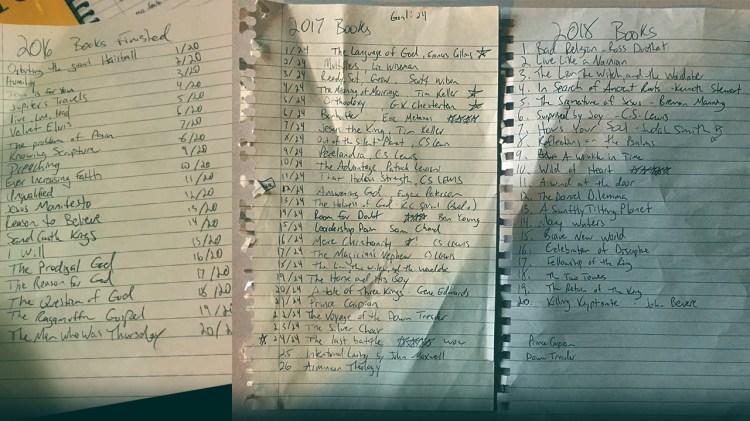 2016 Books Finished
Orbiting the giant Hairball 1/20
Humility 2/20
is for you 3/20
Jupiter's Travels 4/20
live, love, lead 5/20
Velvet Elvis 6/20
The problem of Pain 7/20
Knowing Scripture 8/20
Preaching 9/20
Ever Increasing Faith 10/20
Unqualified 11/20
Jesus Manifesto 12/20
Reason to Believe 13/20
Kings 14/20
I Will 15/20
The Prodigal God 16/20
The Reason for God 17/20
The Question of God 18/20
The Ragamuffin Gospel 19/20
The Man Who Was Thursday 20/2
2017 Books Goal: 24
1/24 The Language of God,
2/24 Multipliers, Liz Wiseman
3/24 Ready, Set, Grow. Scott Wilson
4/24 The Meaning of Marriage, Tim Keller
5/24 Orthodoxy, G.K. Chesterton
6/24 Eric Metaxas
7/24 Jesus the King, Tim Keller
8/24 Out of the Silent Planet, CS Lewis
9/24 Perelandra, CS Lewis
10/24 The Advantage Patrick
11/24 That Hideous Strength, CS Lewis
12/24 Answering God Eugene Peterson
13/24 The Holiness of God R.C. Sproul
14/24 Room for Doubt Ben Young
15/24 Leadership Pain Sam Chand
16/24 Mere Christianity CS Lewis
17/24 The Magicians Nephew CS Lewis
18/24 The Lion the witch and the wardrobe
19/24 The Horse and His Boy
20/24 A tale of Three Kings - Gene Edwards
21/24 Prince Caspian
22/24 The Voyage of the Dawn Treader
23/24 The Silver Chair
24/24 The last battle wow
25 Intentional Living by John Maxwell
26 Arminian Theology
2018 Books
1 Bad Religion - Ross Douthat
2 Live Like a Narnian
3. The Lion The Witch and the Wardrobe
4. In Search of Ancient Roots - Kenneth Stewart
5. The Signature of Jesus - Brennan Manning
6. Surprised by Joy - C.S. Lewis
7. How's Your Soul - Judah Smith
8 Reflections -- the Psalms
9. A Wrinkle in Time
10. Wild at Heart
11. A wind at the door
12. The Daniel Dilemma
13. A Swiftly Tilting Planet
14. Many Waters
15. Brave New World
16. Celebration of Discipline
17. Fellowship of the Ring
18. The Two Towers
19. The Return of the King
20. Killing Kryptonite - John Bevere
Prince Caspian
Dawn Treader